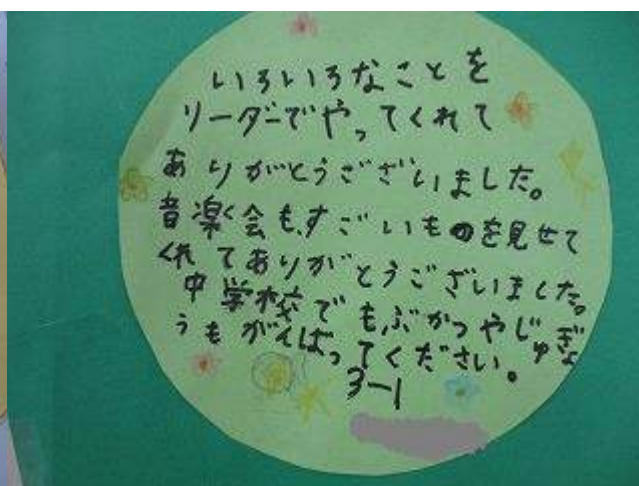 いろいろなことを
リーダーでやってくれて
ありがとうございました。
音楽会も、すごいものを見せて
くれてありがとうございました。
中学校でも、ぶかつやじゅぎょ
うもがんばってください。
3-1